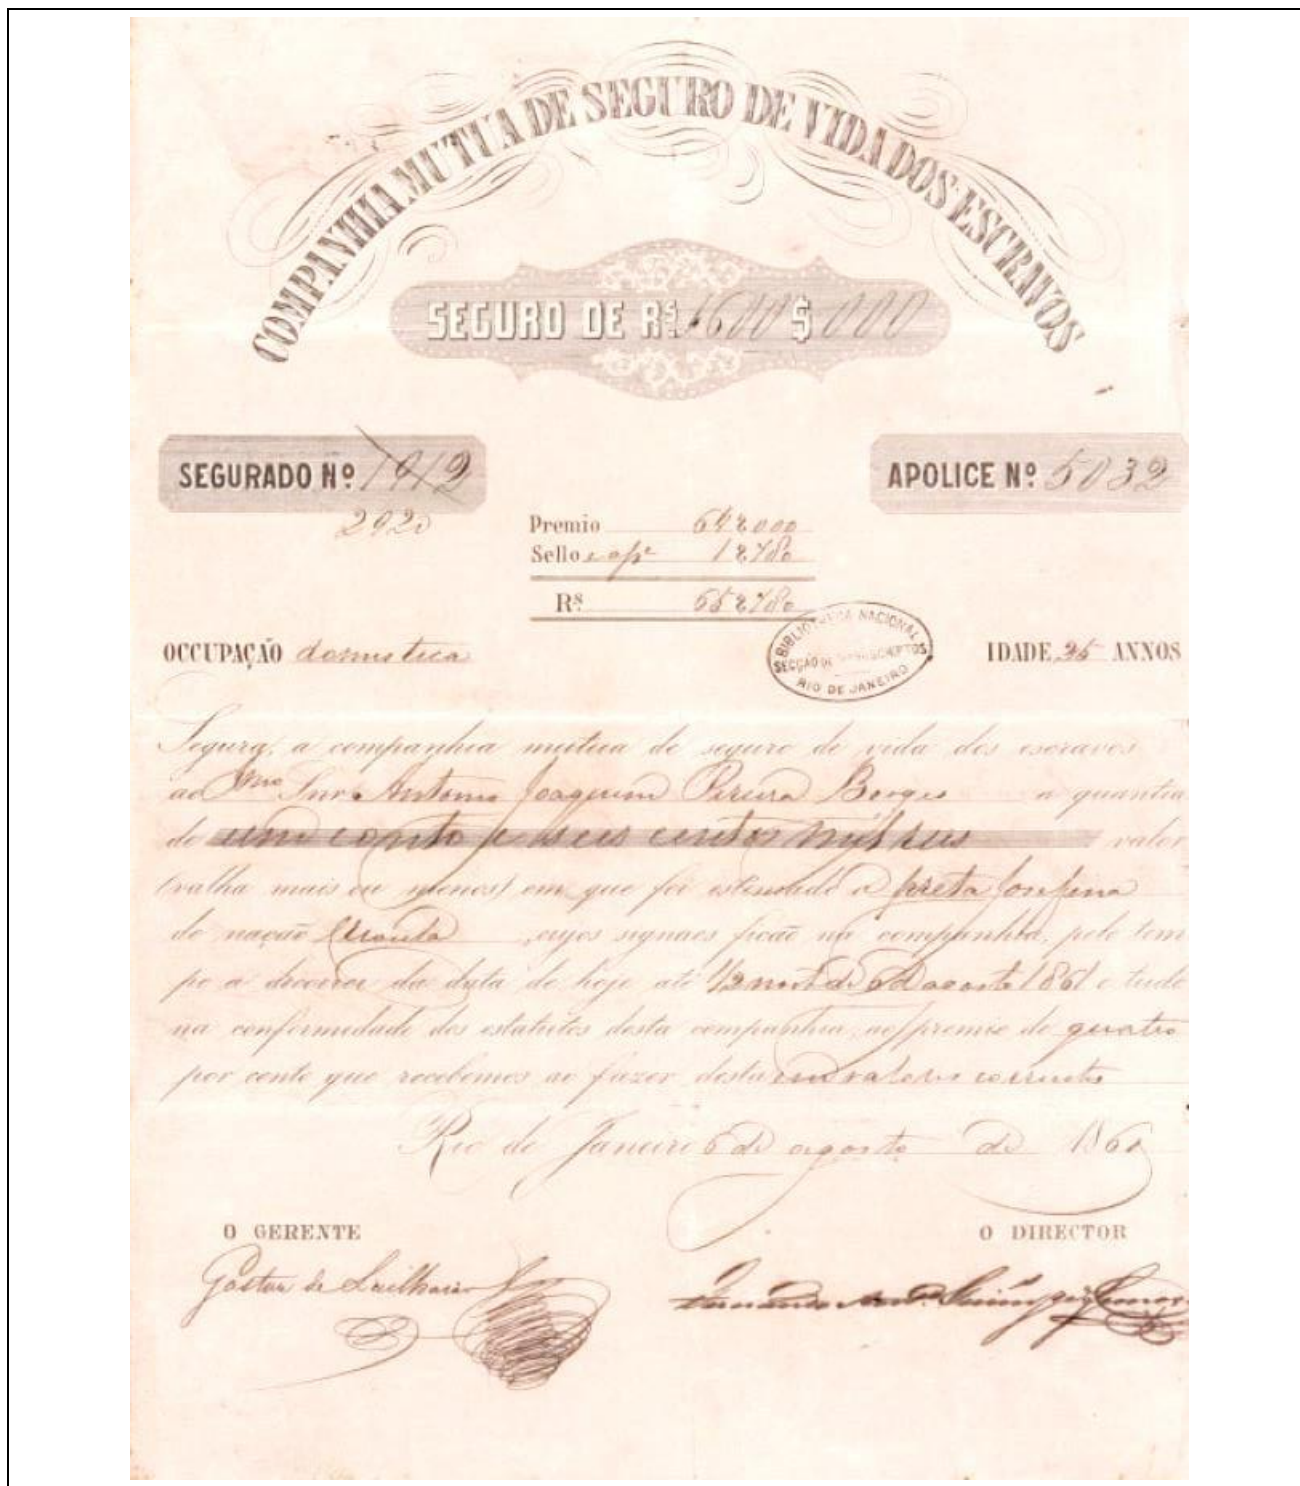 COMPANHIA MUTUA DE SEGURO DE VIDA DOS ESCRAVOS
SEGURO DE RS 1600 $ 000
SEGURADO Nº 1912
2920
APOLICE Nº 5032
Premio 64$000
Sello e apce 1$780
RS 65$780
BIBLIOTHECA NACIONAL
SECÇÃO DE MANUSCRIPTOS
RIO DE JANEIRO
OCCUPAÇÃO domestica
IDADE 35 ANNOS
Segura, a companhia mutua de seguro de vida dos escravos
ao Snr. Antonio Joaquim Pereira Borges a quantia
de um conto e seis centos mil reis valor
(valha mais ou menos) em que foi estimado a preta
de nação , cujos signaes ficão na companhia, pelo tem
po a decorrer da data de hoje até 1/2 noite de 6 de agosto 1861 e tudo
na conformidade dos estatutos desta companhia, ao premio de quatro
por cento que recebemos ao fazer desta em valores correntes
Rio de Janeiro 6 de agosto de 1860
O GERENTE
O DIRECTOR